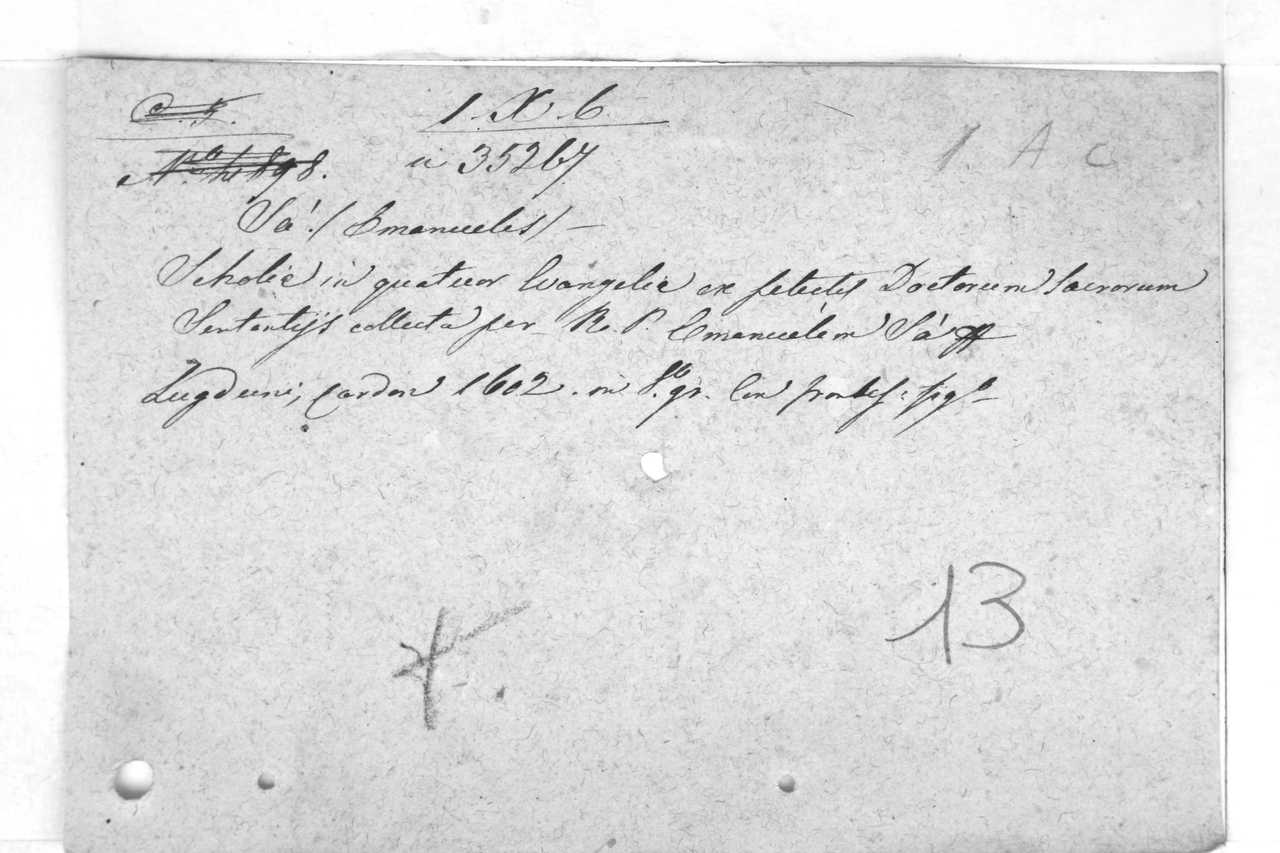 1. X. 6.
1. A c
35267
Sá. (Emanuelis) —
Scholia in quatuor Evangelia ex selectis Doctorum Sacrorum
Sententijs collecta per R. P. Emanuelem Sá
Lugduni, Cardon 1602. in 8.º gr. con frontesp: fig.º
13